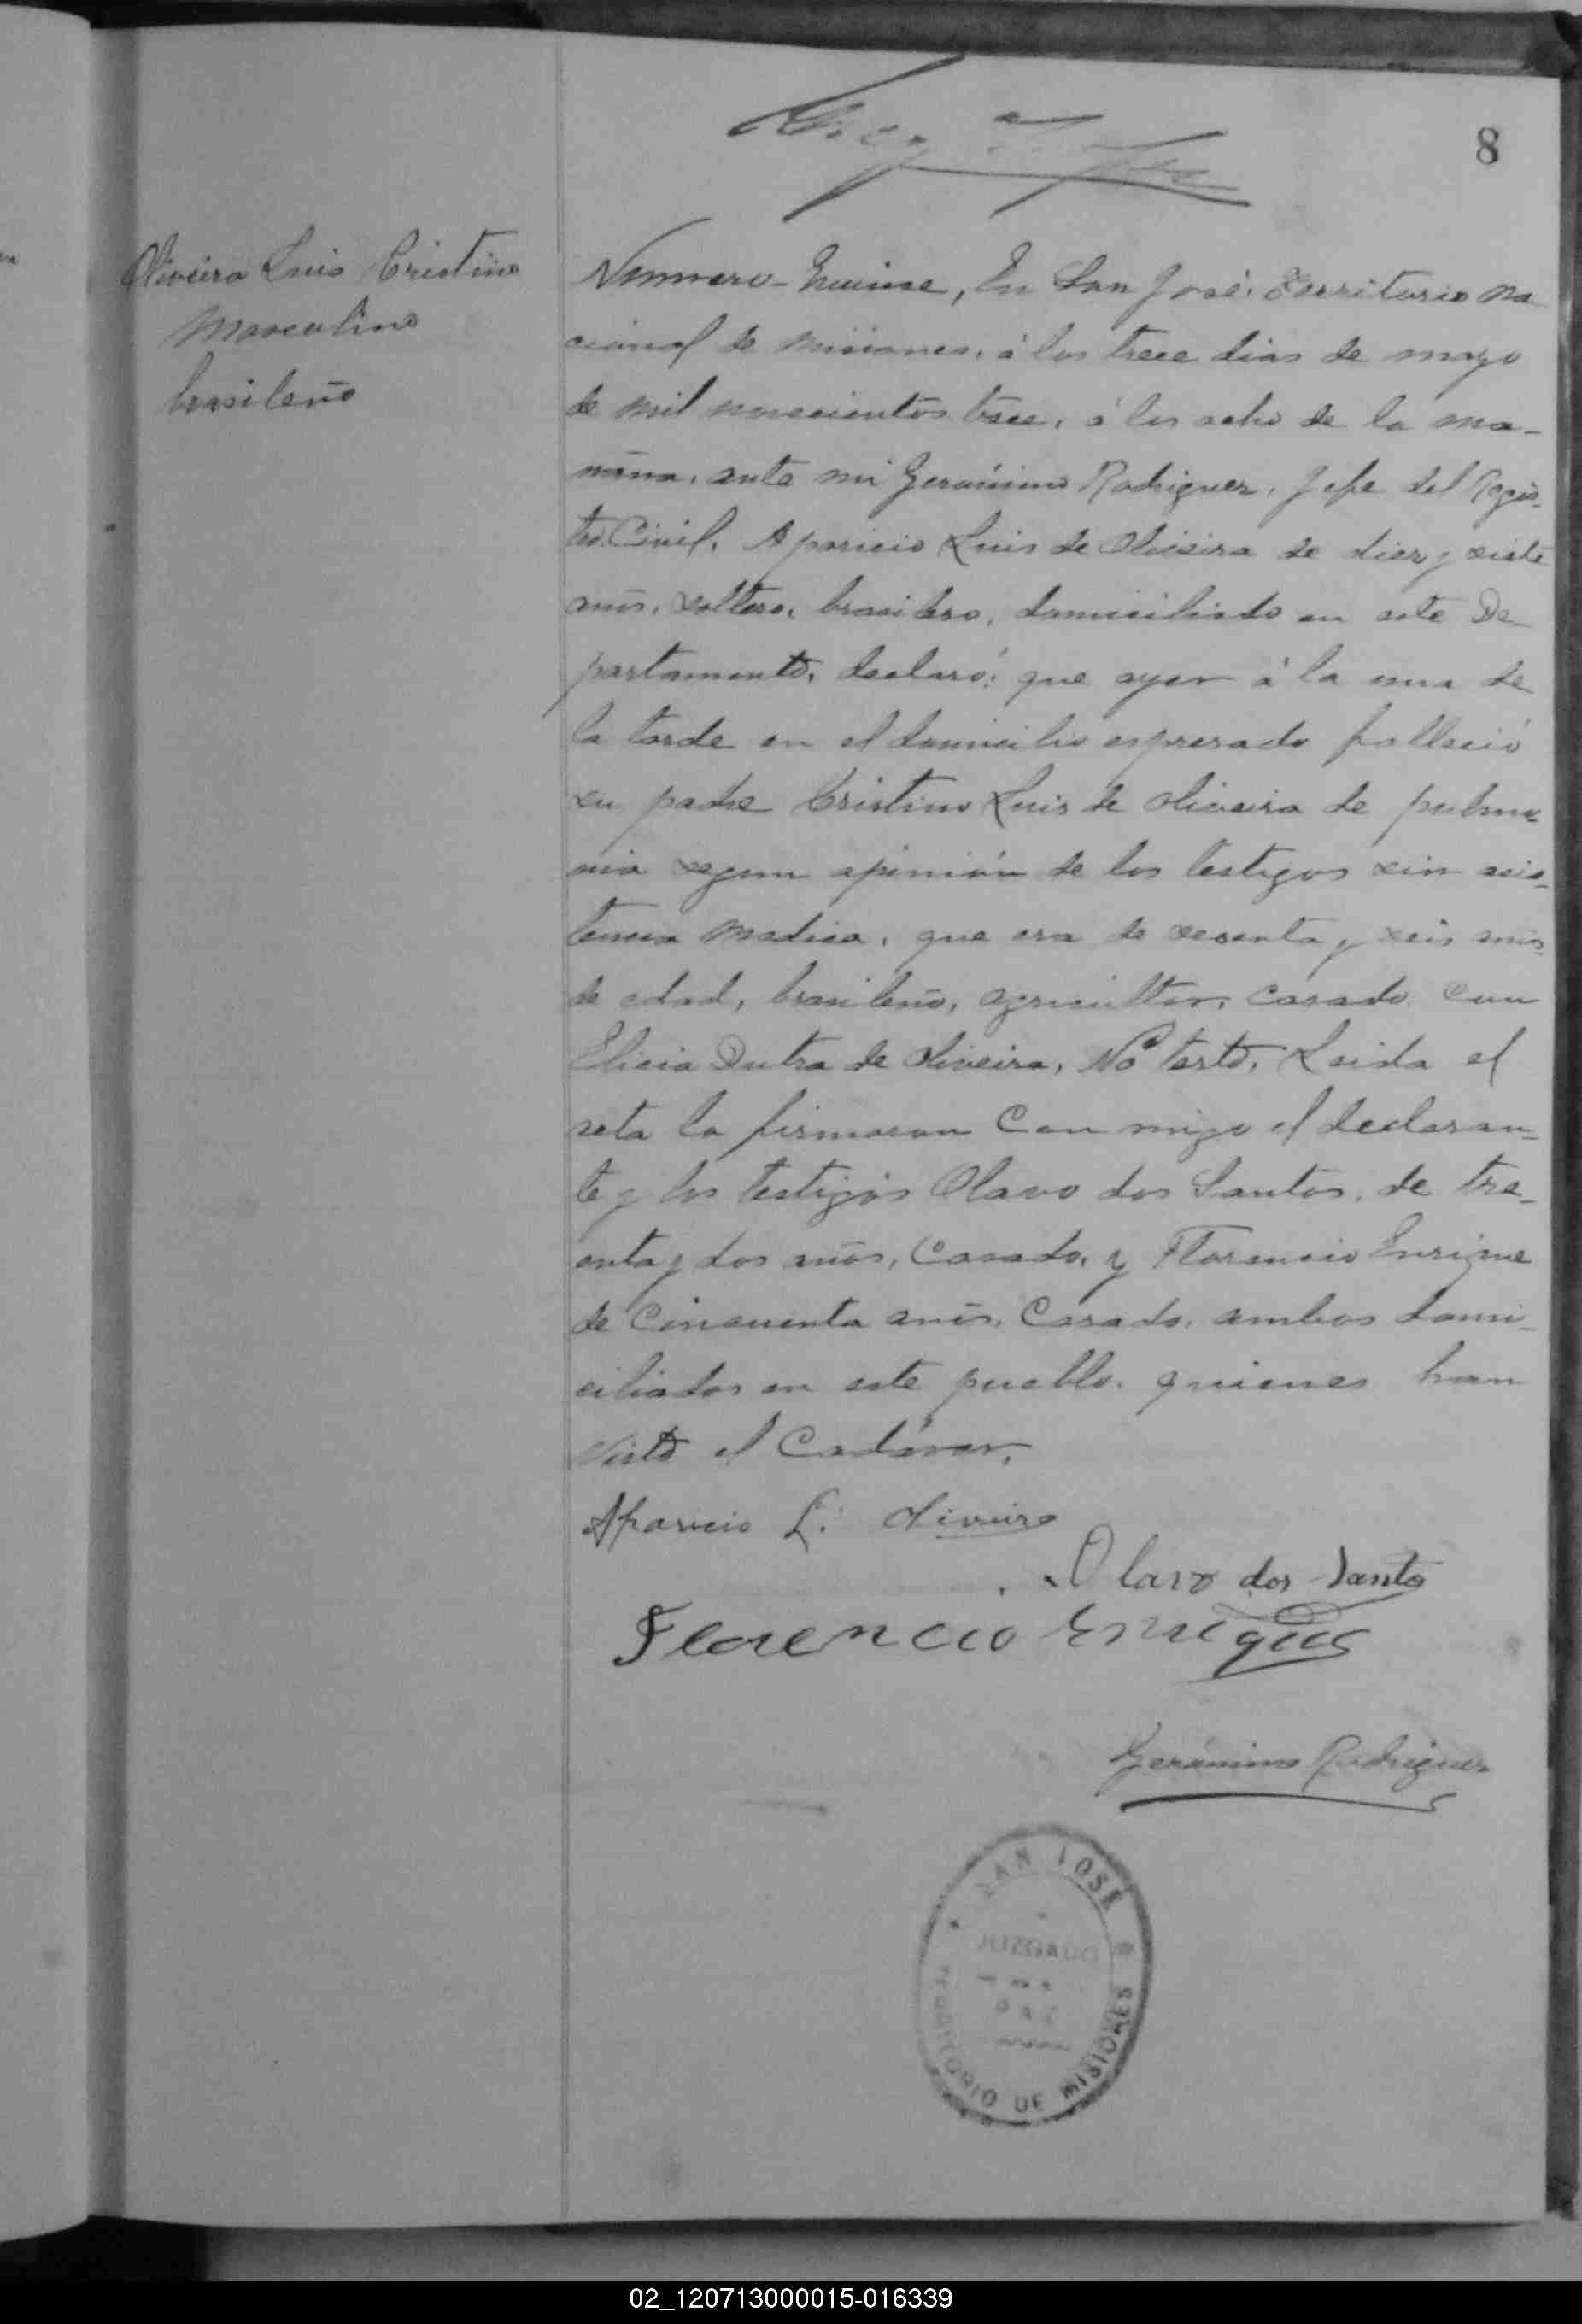 8
Oliveira Luis Cristino
Masculino
brasileño
Nummero-Quinse, En San José, Territorio na
cional de misiones, á los trece dias de mayo
de mil novecientos trece, á las ocho de la ma-
ñana, ante mi Gerónimo Rodriguez, Jefe del Regis-
tro Civil, Aparicio Luis de Oliveira de diez y siete
años, soltero, brasilero, domiciliado en este De-
partamento, declaró: que ayer á la una de
la tarde en el domicilio espresado falleció
su padre Cristino Luis de Oliveira de pulmo-
nia segun opinión de los testigos sin asis-
tencia medica, que era de sesenta y seis años
de edad, brasileño, agricultor, casado con
Elicia Dutra de Oliveira, No testó, Leida el
acta la firmaron con migo el declaran-
te y los testigos Olavo dos Santos, de tre-
enta y dos años, Casado, y Florencio Enrique
de Cincuenta años, Casado, ambos domi-
ciliados en este pueblo, quienes han
visto el Cadáver,
Aparicio L. Oliveira
Olavo dos Santos
Florencio Enrique
Gerónimo Rodriguez
SAN JOSÉ
JUZGADO
DE
PAZ
TERRITORIO DE MISIONES
02_120713000015-016339